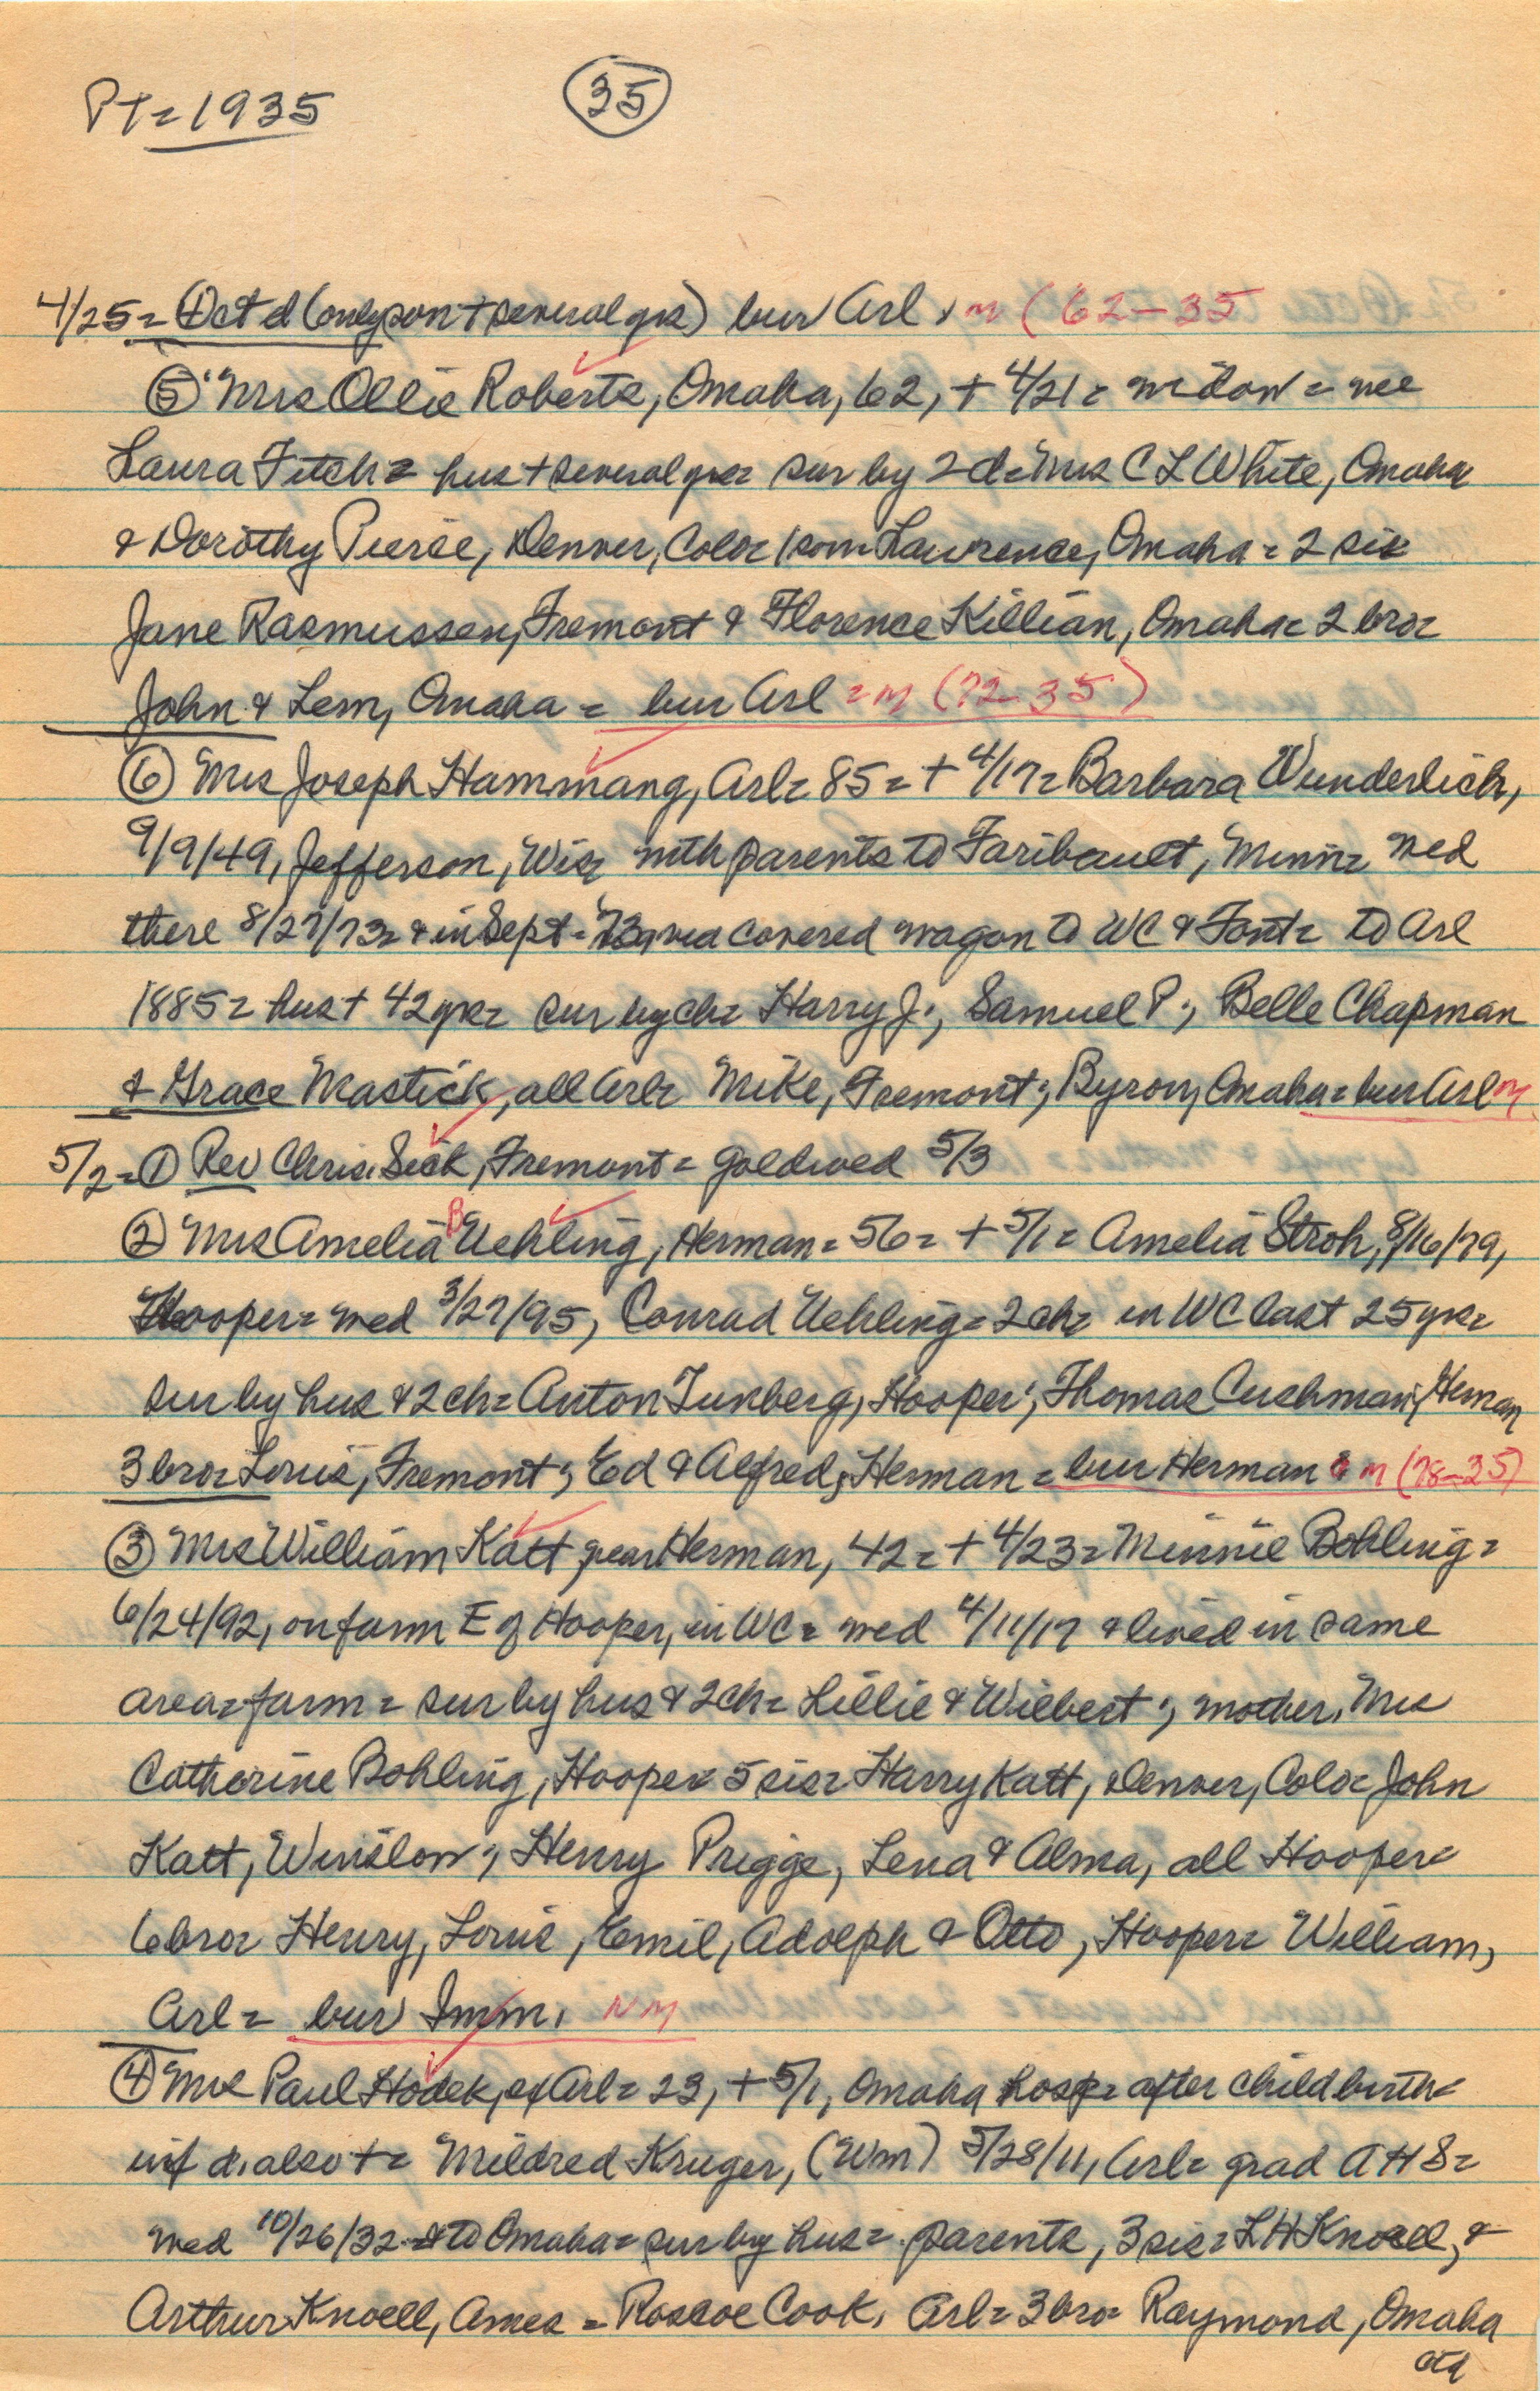 PT = 1935
35
4/25 = ④ ct d (only son + several yrs) bur Arl, m (62-35
⑤ Mrs Ollie Roberts, Omaha, 62, + 4/21 = widow = nee
Laura Fitch = hus + several yrs = sur by 2 d = Mrs C L White, Omaha
& Dorothy Pierce, Denver, Colo = 1 son = Lawrence, Omaha = 2 sis
Jane Rasmussen, Fremont & Florence Killian, Omaha = 2 bro =
John & Lem, Omaha = bur Arl = m (72-35)
⑥ Mrs Joseph Hammang, Arl = 85 = + 4/17 = Barbara Wunderlich,
9/9/49, Jefferson, Wis = with parents to Faribault, Minn = wed
there 8/27/73 = & in Sept = '73, via covered wagon to WC & Font = to Arl
1885 = hus + 42 yrs = sur by ch = Harry J., Samuel P.; Belle Chapman
& Grace Mastick, all Arl = Mike, Fremont; Byron, Omaha = bur Arl m
5/2 = ① Rev Chris. Sick, Fremont = gold wed 5/3
② Mrs Amelia B Uehling, Herman = 56 = + 5/1 = Amelia Stroh, 8/16/79,
Hooper = wed 3/27/95, Conrad Uehling = 2 ch = in WC last 25 yrs =
sur by hus & 2 ch = Anton Tunberg, Hooper; Thomas Cushman, Herman
3 bro = Louis, Fremont; Ed & Alfred, Herman = bur Herman = m (78-35)
③ Mrs William Katt, near Herman, 42 = + 4/23 = Minnie Bohling =
6/24/92, on farm E of Hooper, in WC = wed 4/11/17 & lived in same
area = farm = sur by hus & 2 ch = Lillie & Wilbert; mother, Mrs
Catherine Bohling, Hooper = 5 sis = Harry Katt, Denver, Colo = John
Katt, Winslow; Henry Prigge, Lena & Alma, all Hooper =
6 bro = Henry, Louis, Emil, Adolph & Otto, Hooper = William,
Arl = bur Imm. NM
④ Mrs Paul Hodek, ex Arl = 23, + 5/1, Omaha hosp = after childbirth =
inf d. also + = Mildred Kruger, (Wm) 5/28/11, Arl = grad AHS =
wed 10/26/32 = & to Omaha = sur by hus = parents, 3 sis = L H Knoell, &
Arthur Knoell, Ames = Roscoe Cook, Arl = 3 bro = Raymond, Omaha
ctd